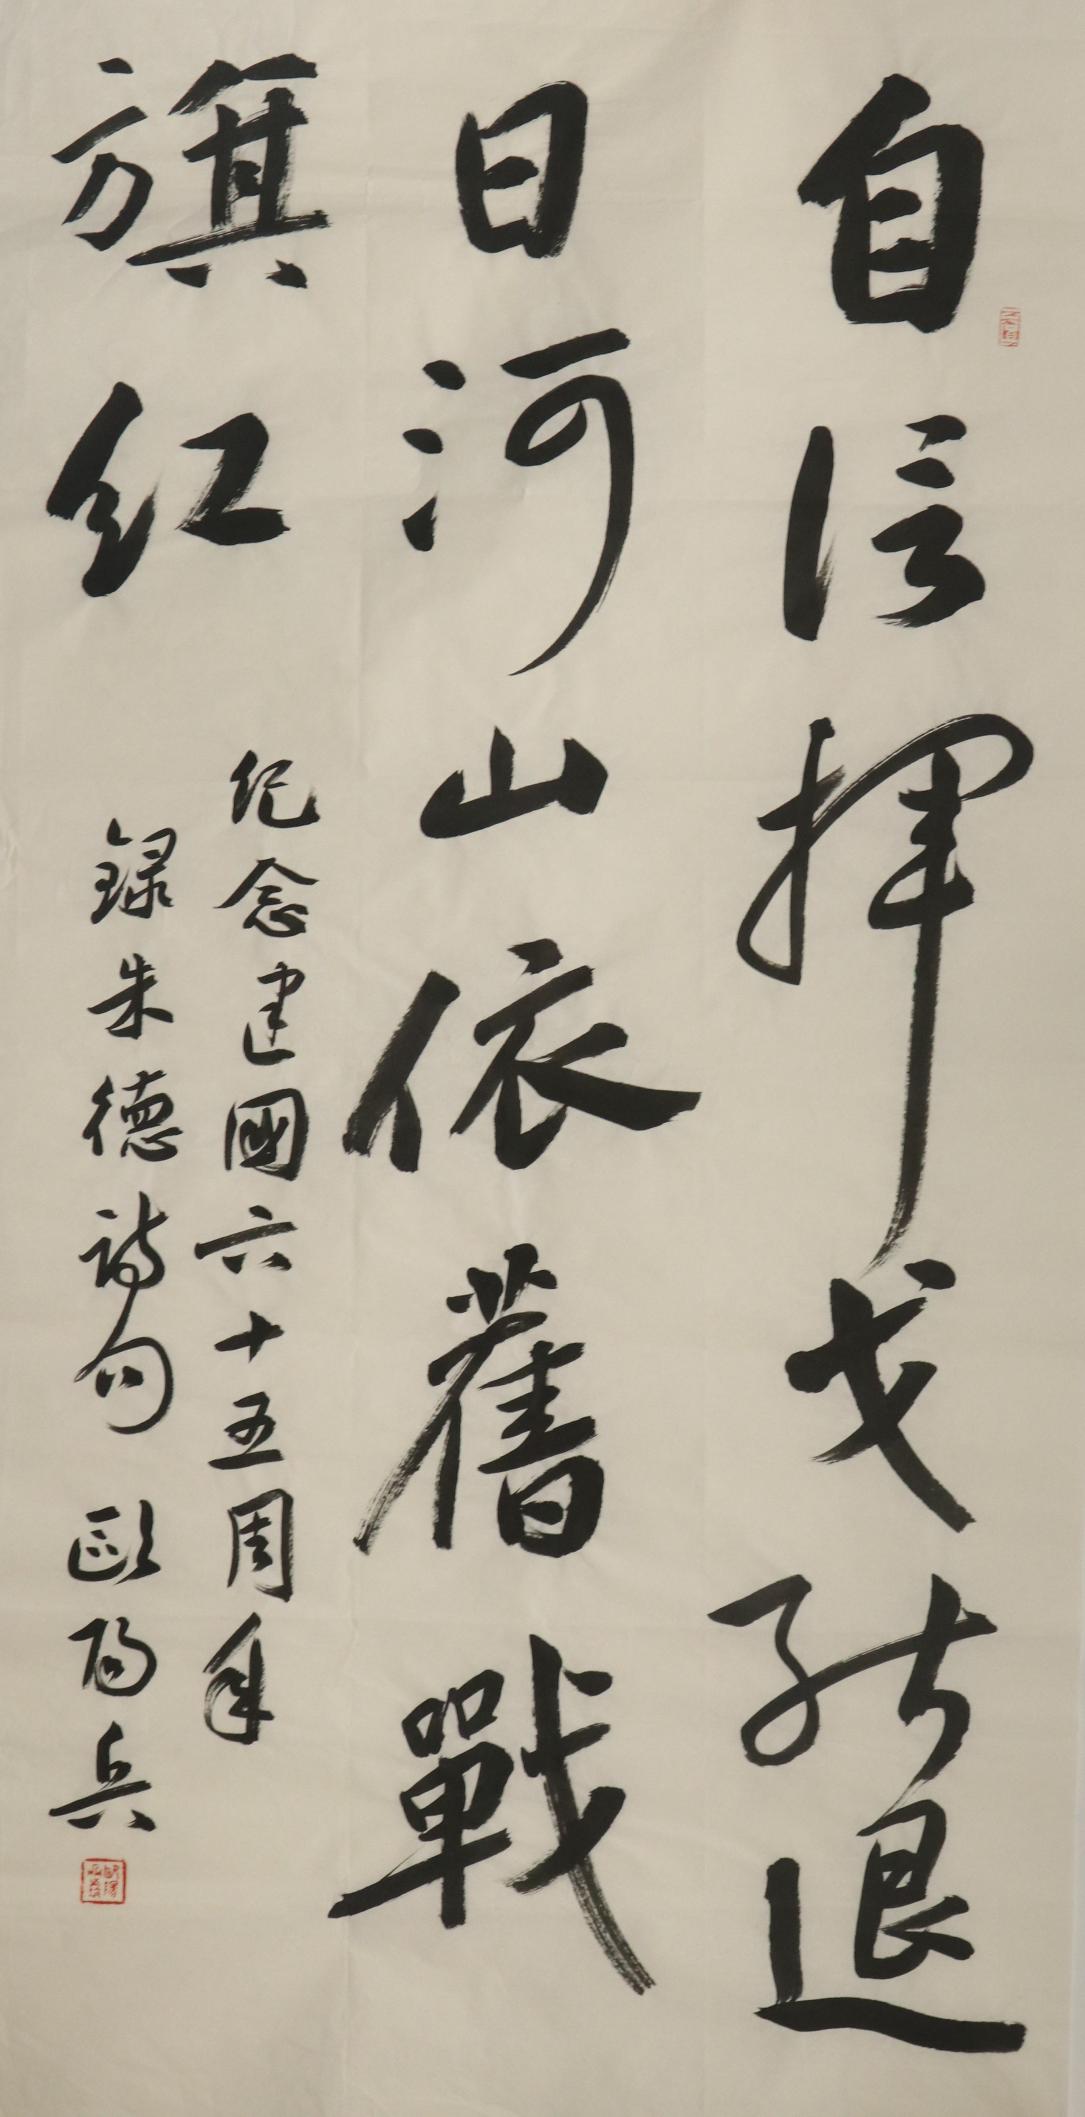 自信揮戈能退
日河山依舊戰
旗紅
纪念建國六十五周年
録朱德詩句 歐陽兵